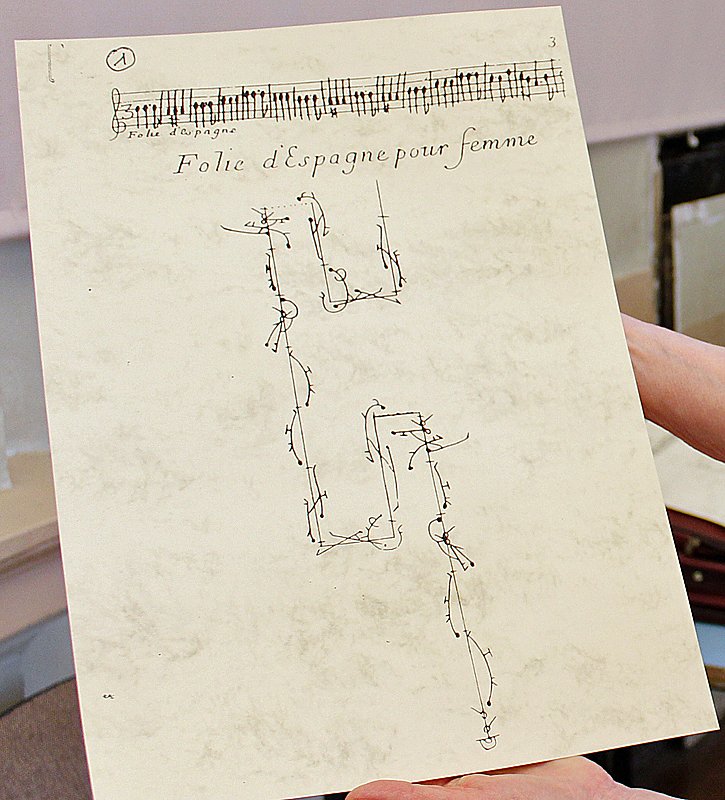 1
3
3
Folie d'Espagne
Folie d'Espagne pour femme